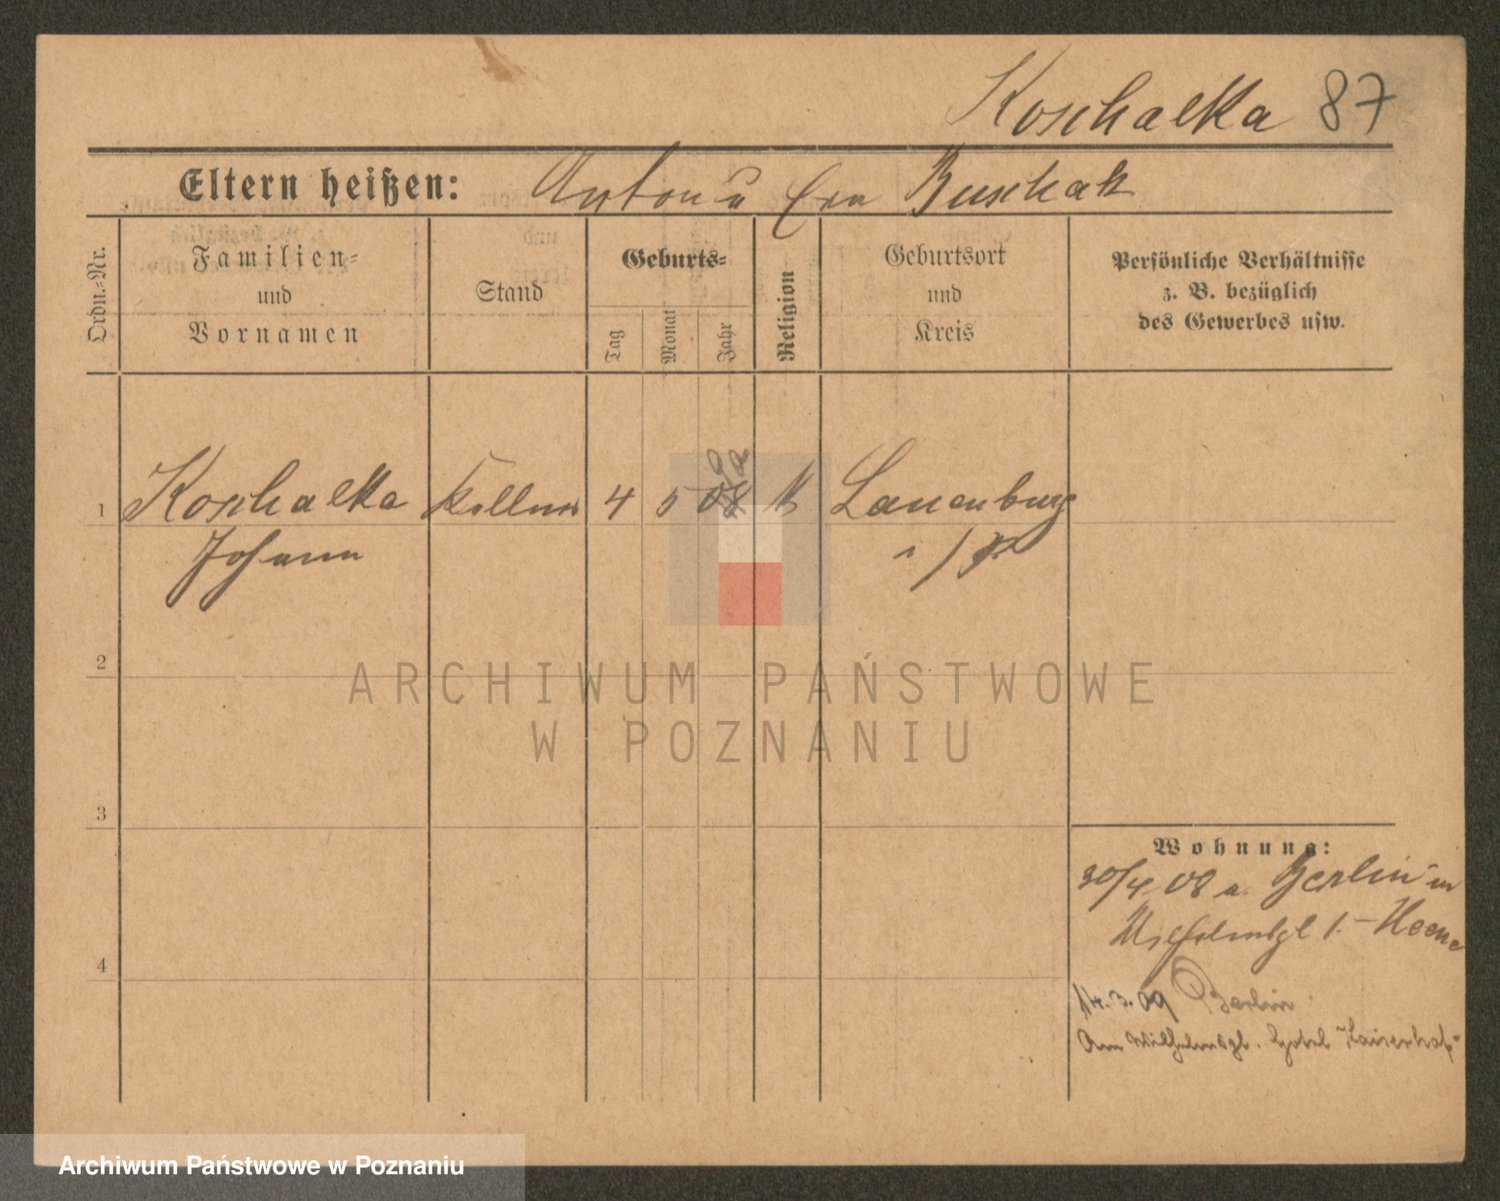 Koschalka 87
Eltern heißen: Anton u Eva Buschak
Ordn.-Nr.
Familien-
und
Vornamen
Stand
Geburts-
Tag
Monat
Jahr
Religion
Geburtsort
und
Kreis
Persönliche Verhältnisse
z. B. bezüglich
des Gewerbes usw.
1 Koschalka Kellner 4 5 08 88 K Lauenburg
Johann i/P.
2
ARCHIWUM PAŃSTWOWE
W POZNANIU
3
Wohnung:
30/4 08 a. Berlin
Wilhelmspl 1.
4
14.3.09 Berlin
Am Wilhelmspl. Hotel Kaiserhof
Archiwum Państwowe w Poznaniu